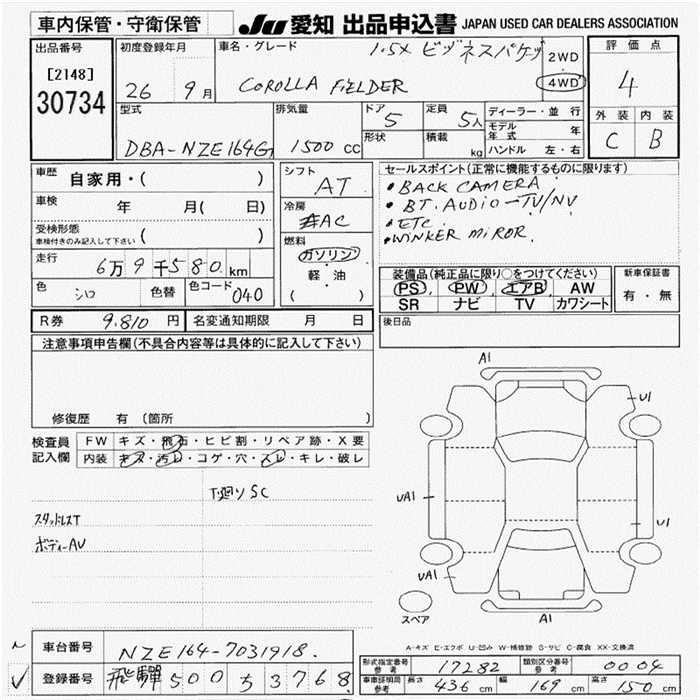 車内保管・守衛保管 JU 愛知 出品申込書 JAPAN USED CAR DEALERS ASSOCIATION
出品番号 初度登録年月 車名・グレード 1.5X ビジネスパケッ 2WD 評価点
[2148]
30734 26 9月 COROLLA FIELDER 4WD 4
型式 排気量 ドア 5 定員 5人 ディーラー・並行 外装 内装
DBA-NZE164G 1500 CC 形状 積載 kg モデル年式 年 C B
ハンドル 左・右
車歴 自家用・( ) シフト AT セールスポイント(正常に機能するものに限ります)
・BACK CAMERA
車検 年 月( 日) 冷房 AC ・BT. AUDIO-TV/NV
受検形態 車検付きのみ記入して下さい ( ) 燃料 ・ETC
ガソリン ・WINKER MIROR.
走行 6万9千580km 軽・油 装備品(純正品に限り○をつけてください) 新車保証書
色 シロ 色替 色コード 040 ( ) PS PW エアB AW 有・無
SR ナビ TV カワシート
R券 9.810 円 名変通知期限 月 日 後日品
注意事項申告欄(不具合内容等は具体的に記入して下さい)
修復歴 有 〔箇所 〕
検査員記入欄 FW キズ・飛石・ヒビ割・リペア跡・X要
内装 キズ・汚レ・コゲ・穴・スレ・キレ・破レ
T廻りSC
スタッドレスT
ボディーAV
A1
U1
UA1
U1
UA1
スペア A1
A-キズ E-エクボ U-凹み W-補修跡 S-サビ C-腐食 XX-交換済
車台番号 NZE164-7031918.
登録番号 飛騨 500 ち 3768
形式指定番号 参考 17282 類別区分番号 参考 0004
車車証明同 参考 長さ 436 cm 幅 169 cm 高さ 150 cm